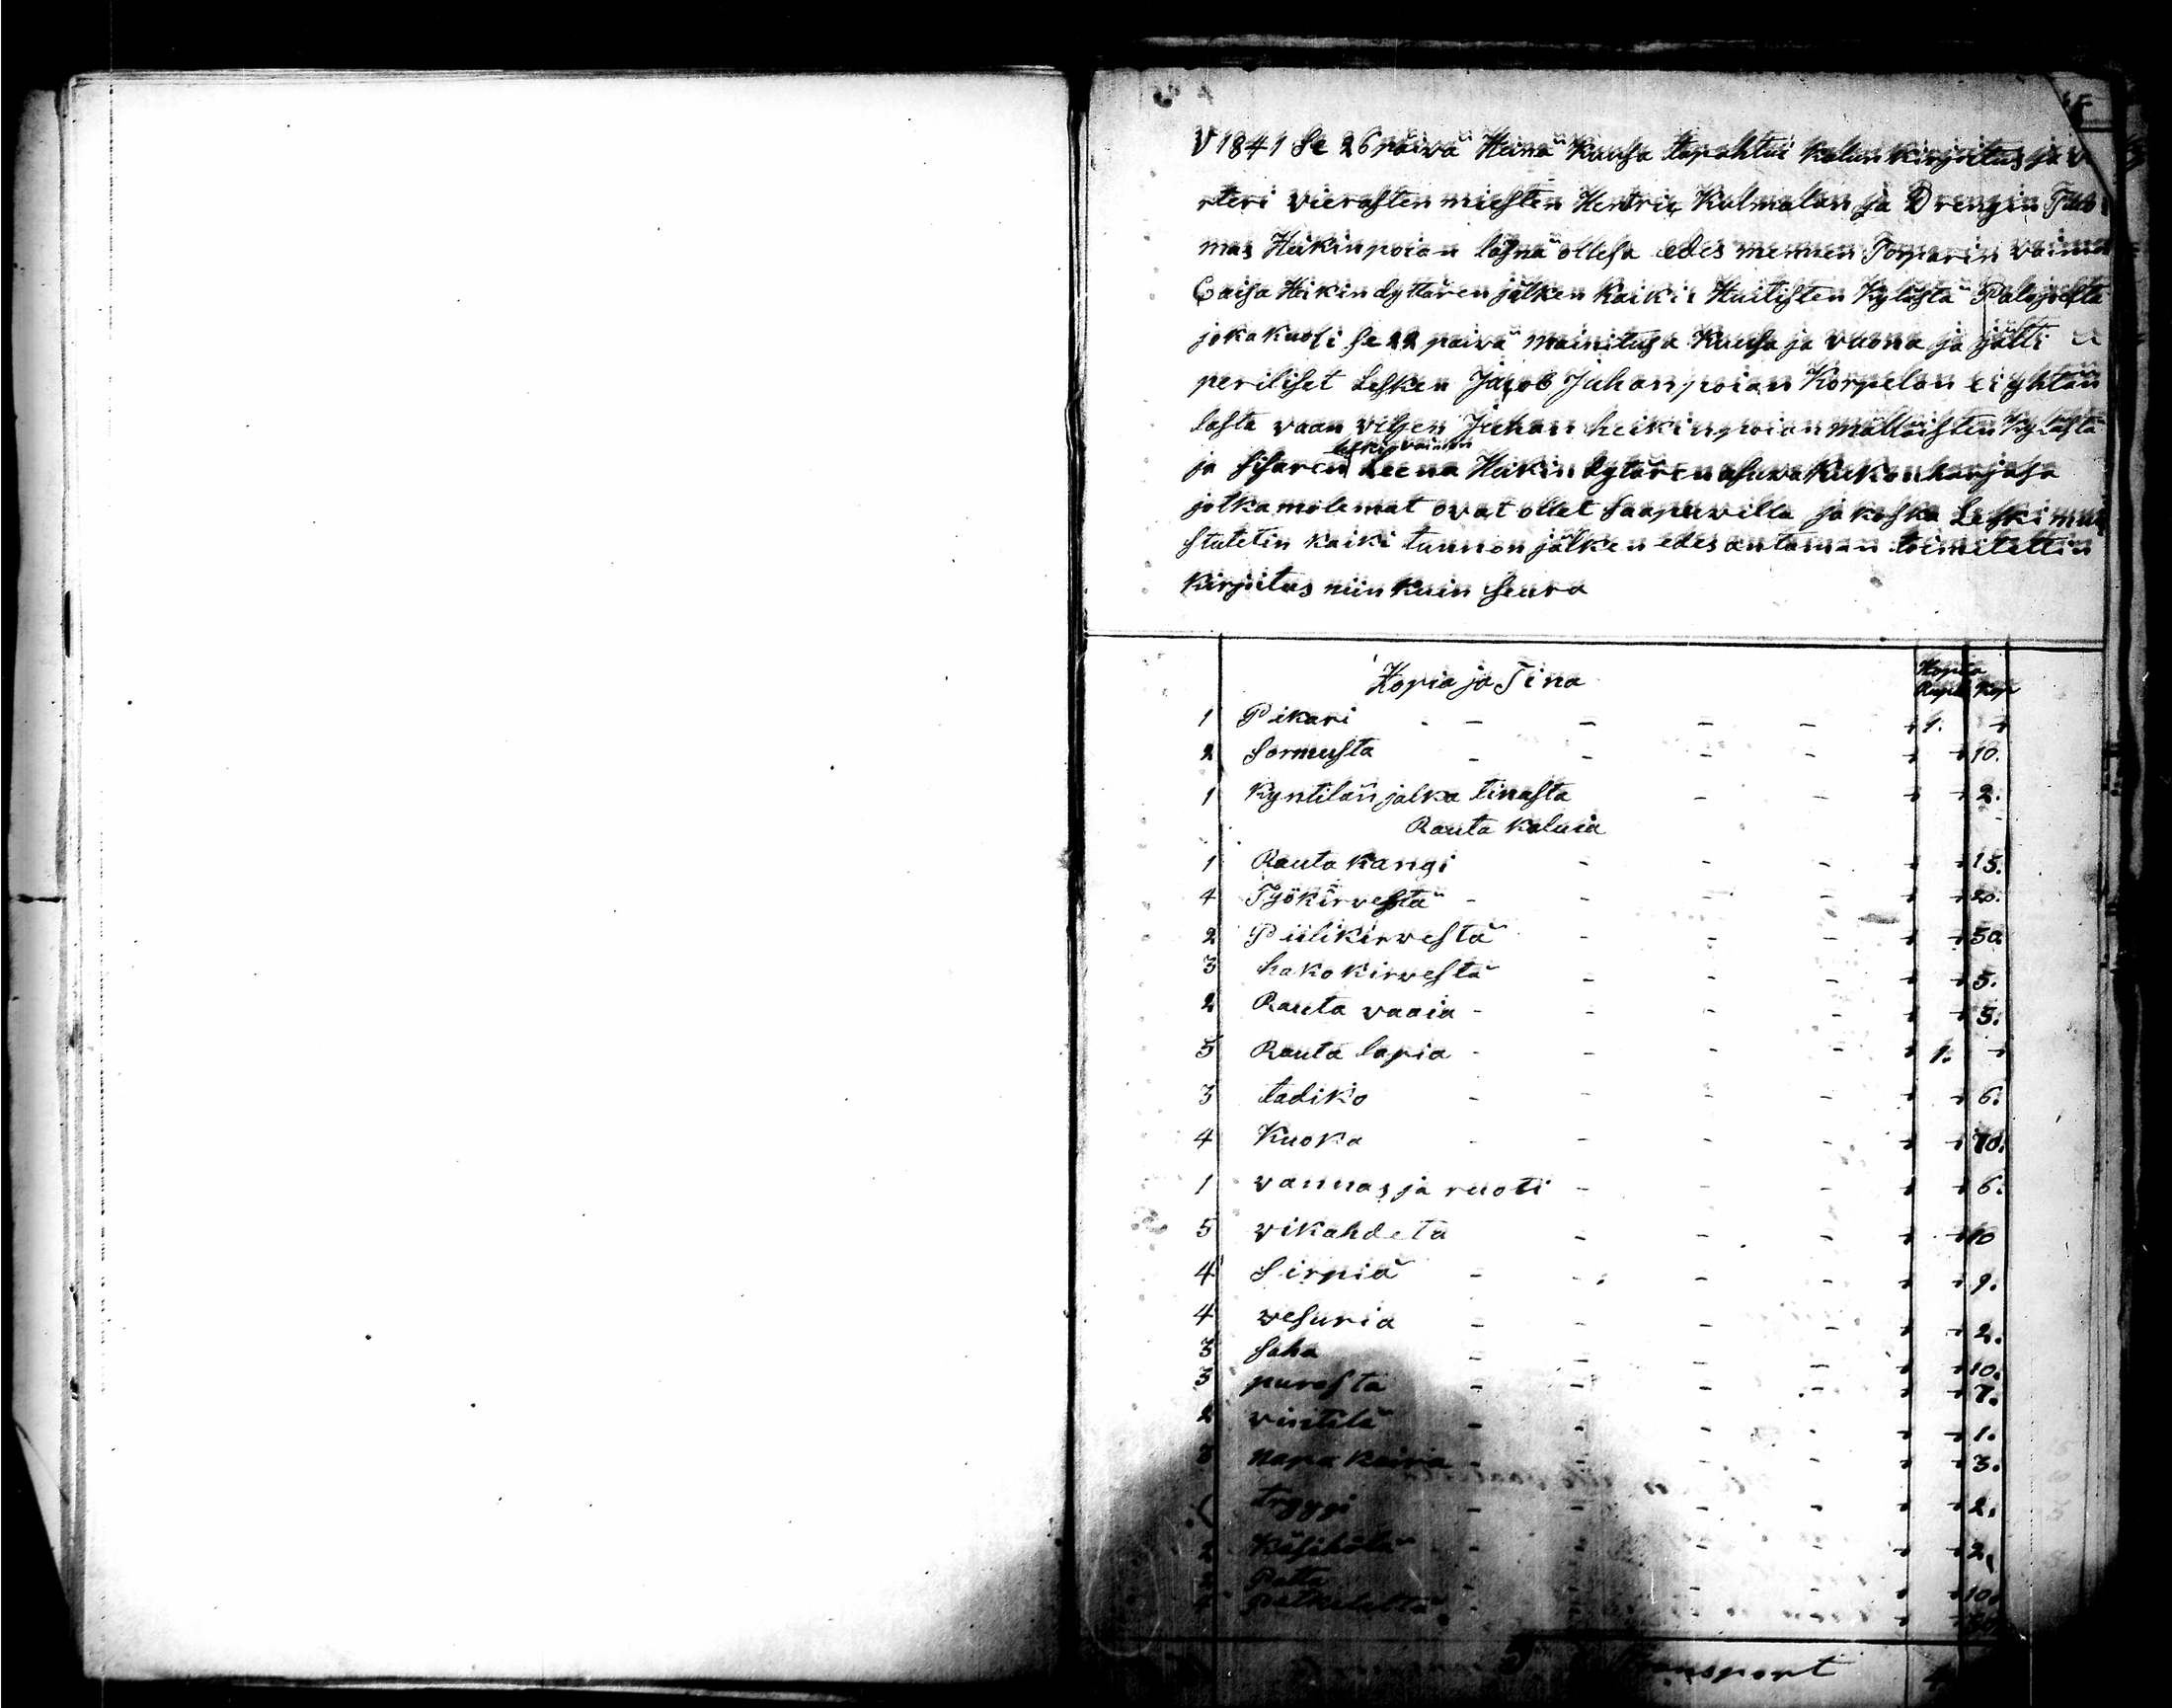 V 1841 Se 26 päivä Heinä Kuusa tapahtui kalun kirjoitus ja
rteri vierasten miesten Hentric Kalmalan ja Drengin Tuo
mas Heikinpoian läsnä ollesa edes mennen Torparin vaimo
Caisa Heikin dyttären jälken kaikii Huitisten Kylästä Palojosta
joka kuoli Se 22 paivä mainitusa Kuusa ja vuona ja jätti
periliset Lesken Jacob Juhanpoian Korpelan ei yhtän
lasta vaan veljen Juhan heikinpoian mällöisten Kylästä
leskivaimon
ja Sisaren Leena Heikin dytären asuva Kukonharjasa
jotka molemat ovat ollet Saapuvilla ja koska Leski
stutetin kaiki tunnon jälken edes antaman toimitettin
Kirjoitus niin kuin Seura
Hopia ja Tina
Hopia
Rupla Kop
1 Pikari - - - - + 1. +
2 Sormusta - - - - + + 10.
1 Kyntilän jalka tinasta - - + + 2.
Rauta kaluia
1 Rauta kangi - - - + + 15.
4 Työkirvestä - - - - + + 20.
2 Piilikirvestä - - - + + 50
3 hakokirvestä - - - + + 5.
2 Rauta vaaia - - - - + + 5.
5 Rauta lapia - - - - + 1. +
3 tadiko - - - - + + 6.
4 Kuoka - - - - + + 70.
1 vannas ja ruoti - - - - + + 6.
5 vikahdeta - - - + + 10
4 Sirpiä - - - - + + 9.
4 vesuria - - - - + + 2.
3 Saha - - - - + + 10.
3 purasta - - - - + + 7.
2 vintilä - - - - + + 1.
3 napa kaira - - - - + + 3.
tryygi - - - - + + 2.
2 Käsihölä - - - - + + 2.
2 Pata - - - - + + 10.
Transport